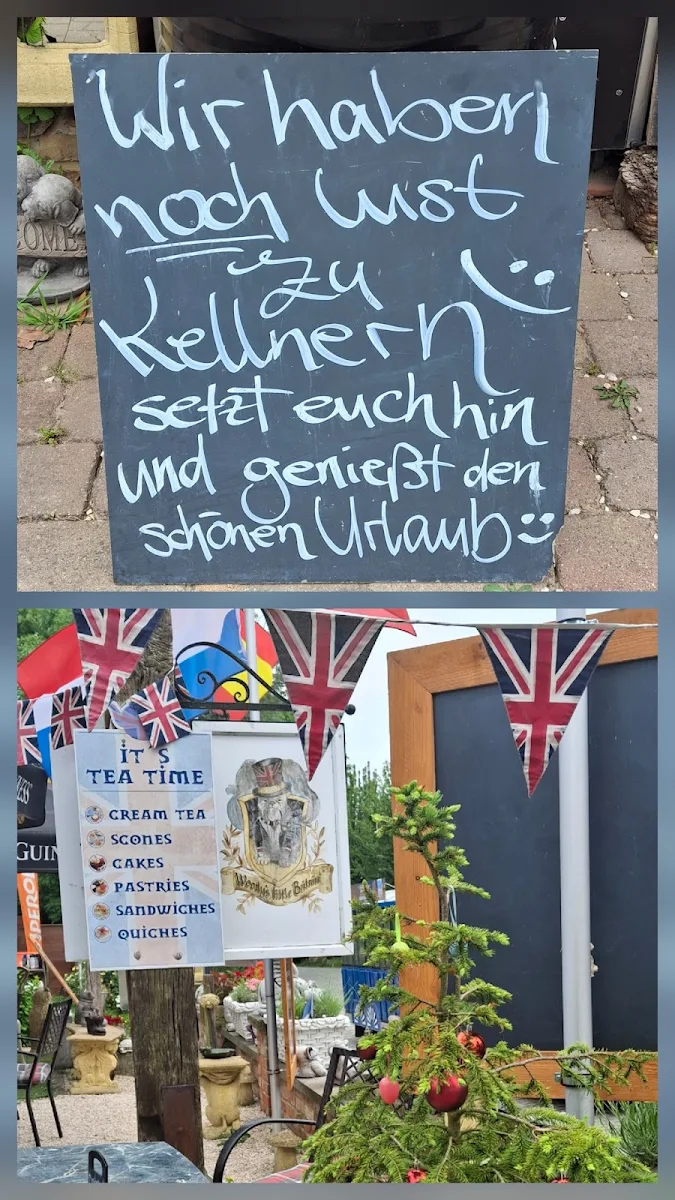 Wir haben
noch Lust
zu
Kellnern
setzt euch hin
und genießt den
schönen Urlaub
OME
IT'S
TEA TIME
CREAM TEA
SCONES
CAKES
PASTRIES
SANDWICHES
QUICHES
Woody's little Britain
GUIN
PEROL